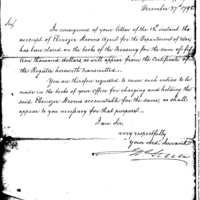 December 27th 179
Sir
In consequence of your letter of the 7th instant the
account of Ebenezer Stevens Agent for the Department of War
has been closed on the books of the Treasury for the sum of fif
teen thousand dollars as will appear from the Certificate of
the Register herewith transmitted.
You are therefore requested to cause such entries to be
made in the books of your office for charging and holding the
said Ebenezer Stevens accountable for the same; as shall
appear to you necessary for that purpose.
I am Sir,
very respectfully
Your obdt Servant